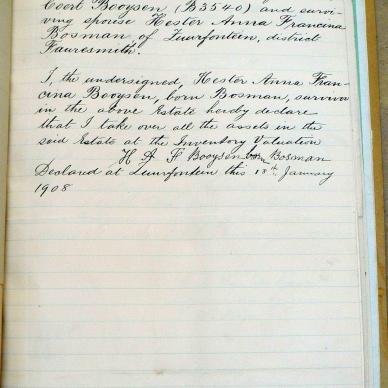 Coert Booysen (B3540) and survi-
ving spouse Hester Anna Francina
Bosman, of Zuurfontein, district
Fauresmith.
I, the undersigned, Hester Anna Fran-
cina Booysen, born Bosman, survivor
in the above Estate hereby declare
that I take over all the assets in the
said Estate at the Inventory Valuation
H A F Booysen born Bosman
Declared at Zuurfontein this 18th January
1908